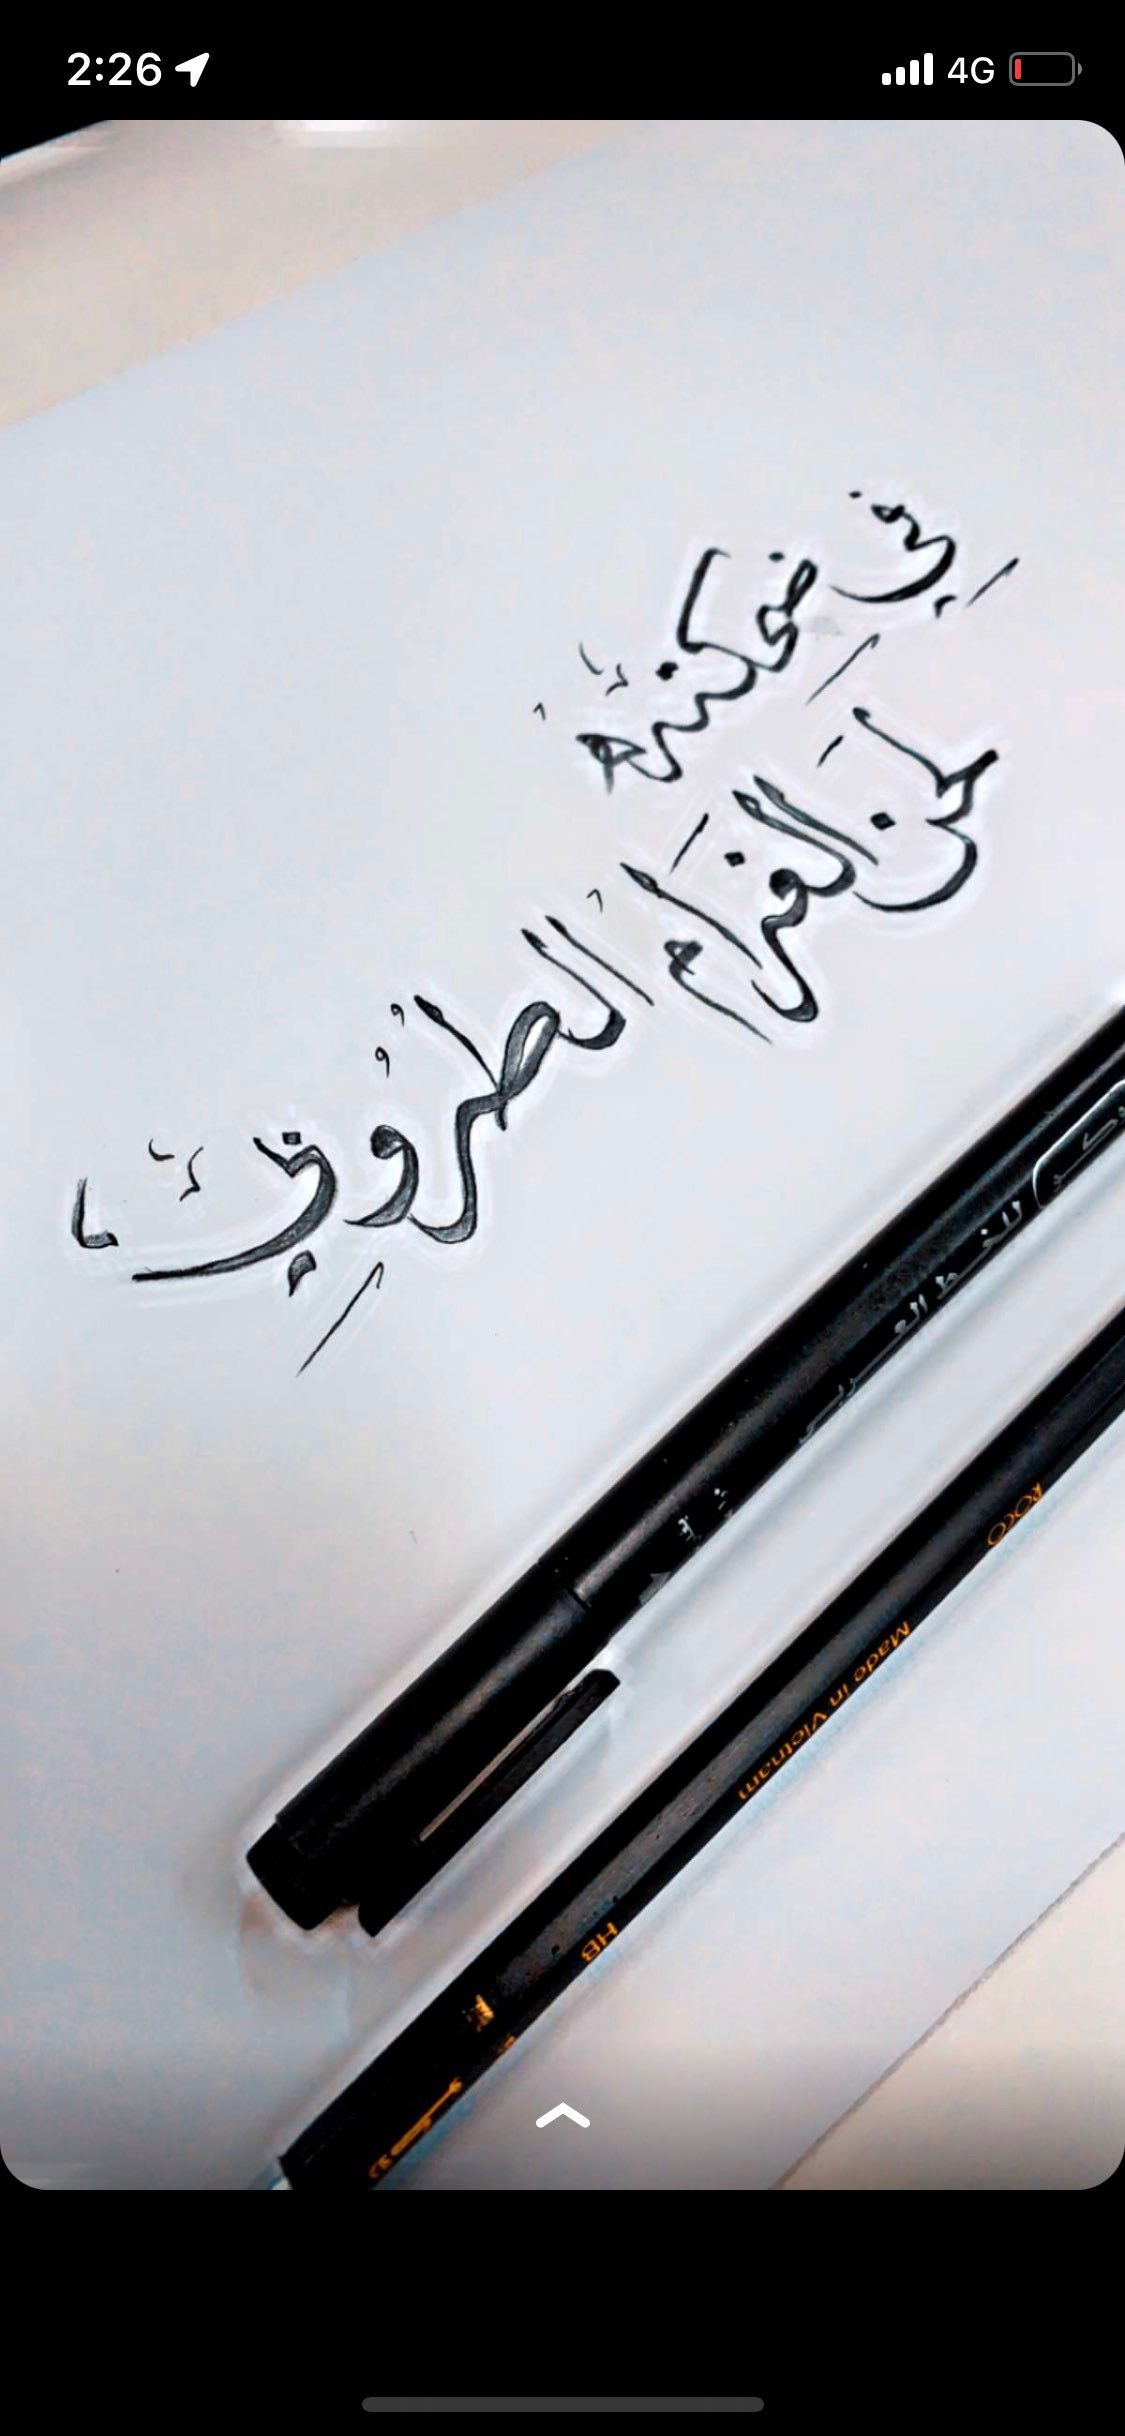 2:26
4G
في ضحكته
لحن الغرام الطروبي
للخط العربي
ROCO
Made in Vietnam
HB
روكو